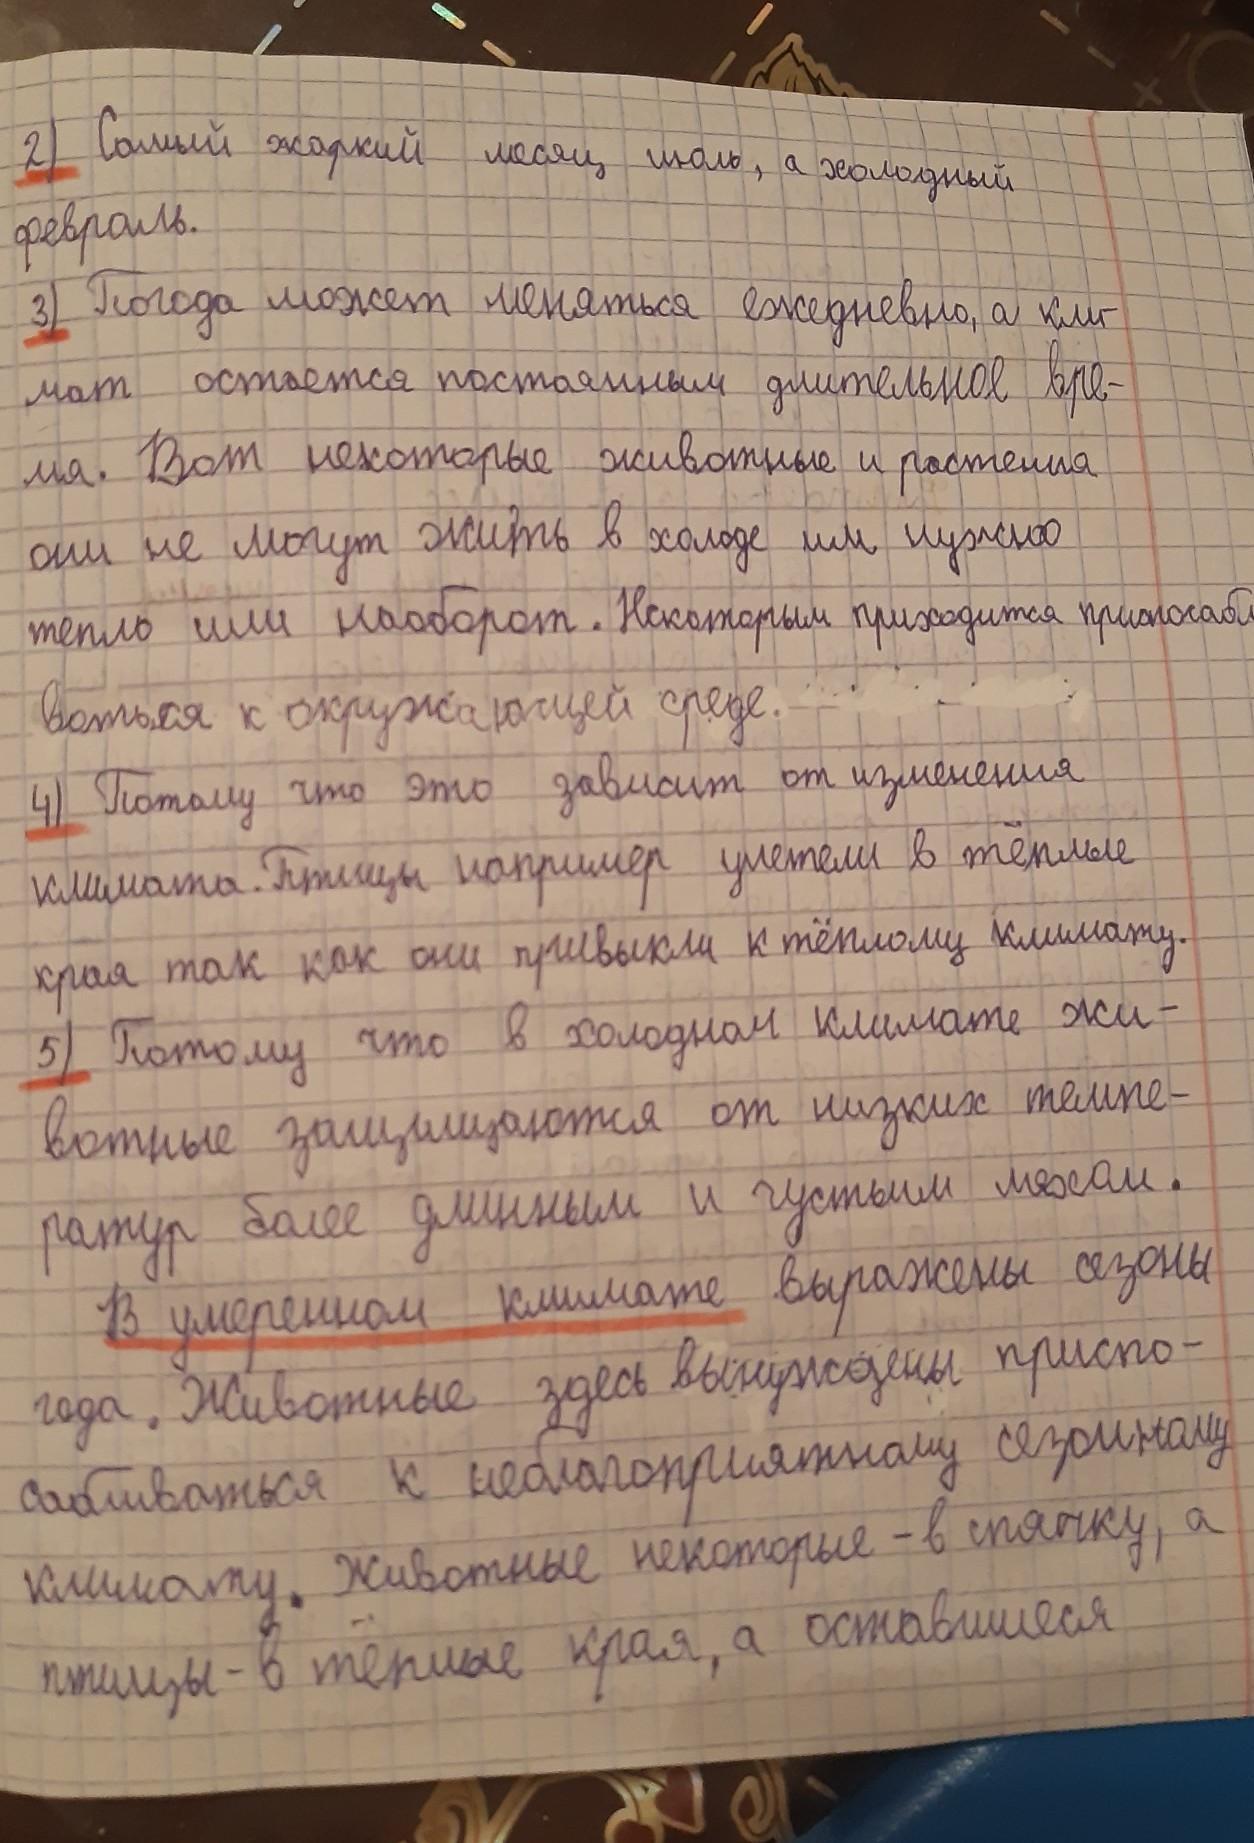 2) Самый жаркий месяц июль, а холодный
февраль.
3) Погода может меняться ежедневно, а кли-
мат остается постоянным длительное вре-
мя. Вот некоторые животные и растения
они не могут жить в холоде им нужно
тепло или наоборот. Некоторым приходится приспосабли
ваться к окружающей среде.
4) Потому что это зависит от изменения
климата. Птицы например улетели в тёплые
края так как они привыкли к тёплому климату.
5) Потому что в холодном климате жи-
вотные защищаются от низких темпе-
ратур более длинным и густым мехом.
В умеренном климате выражены сезоны
года. Животные здесь вынуждены приспо-
сабливаться к неблагоприятному сезонному
климату. Животные некоторые - в спячку, а
птицы - в тёплые края, а оставшиеся